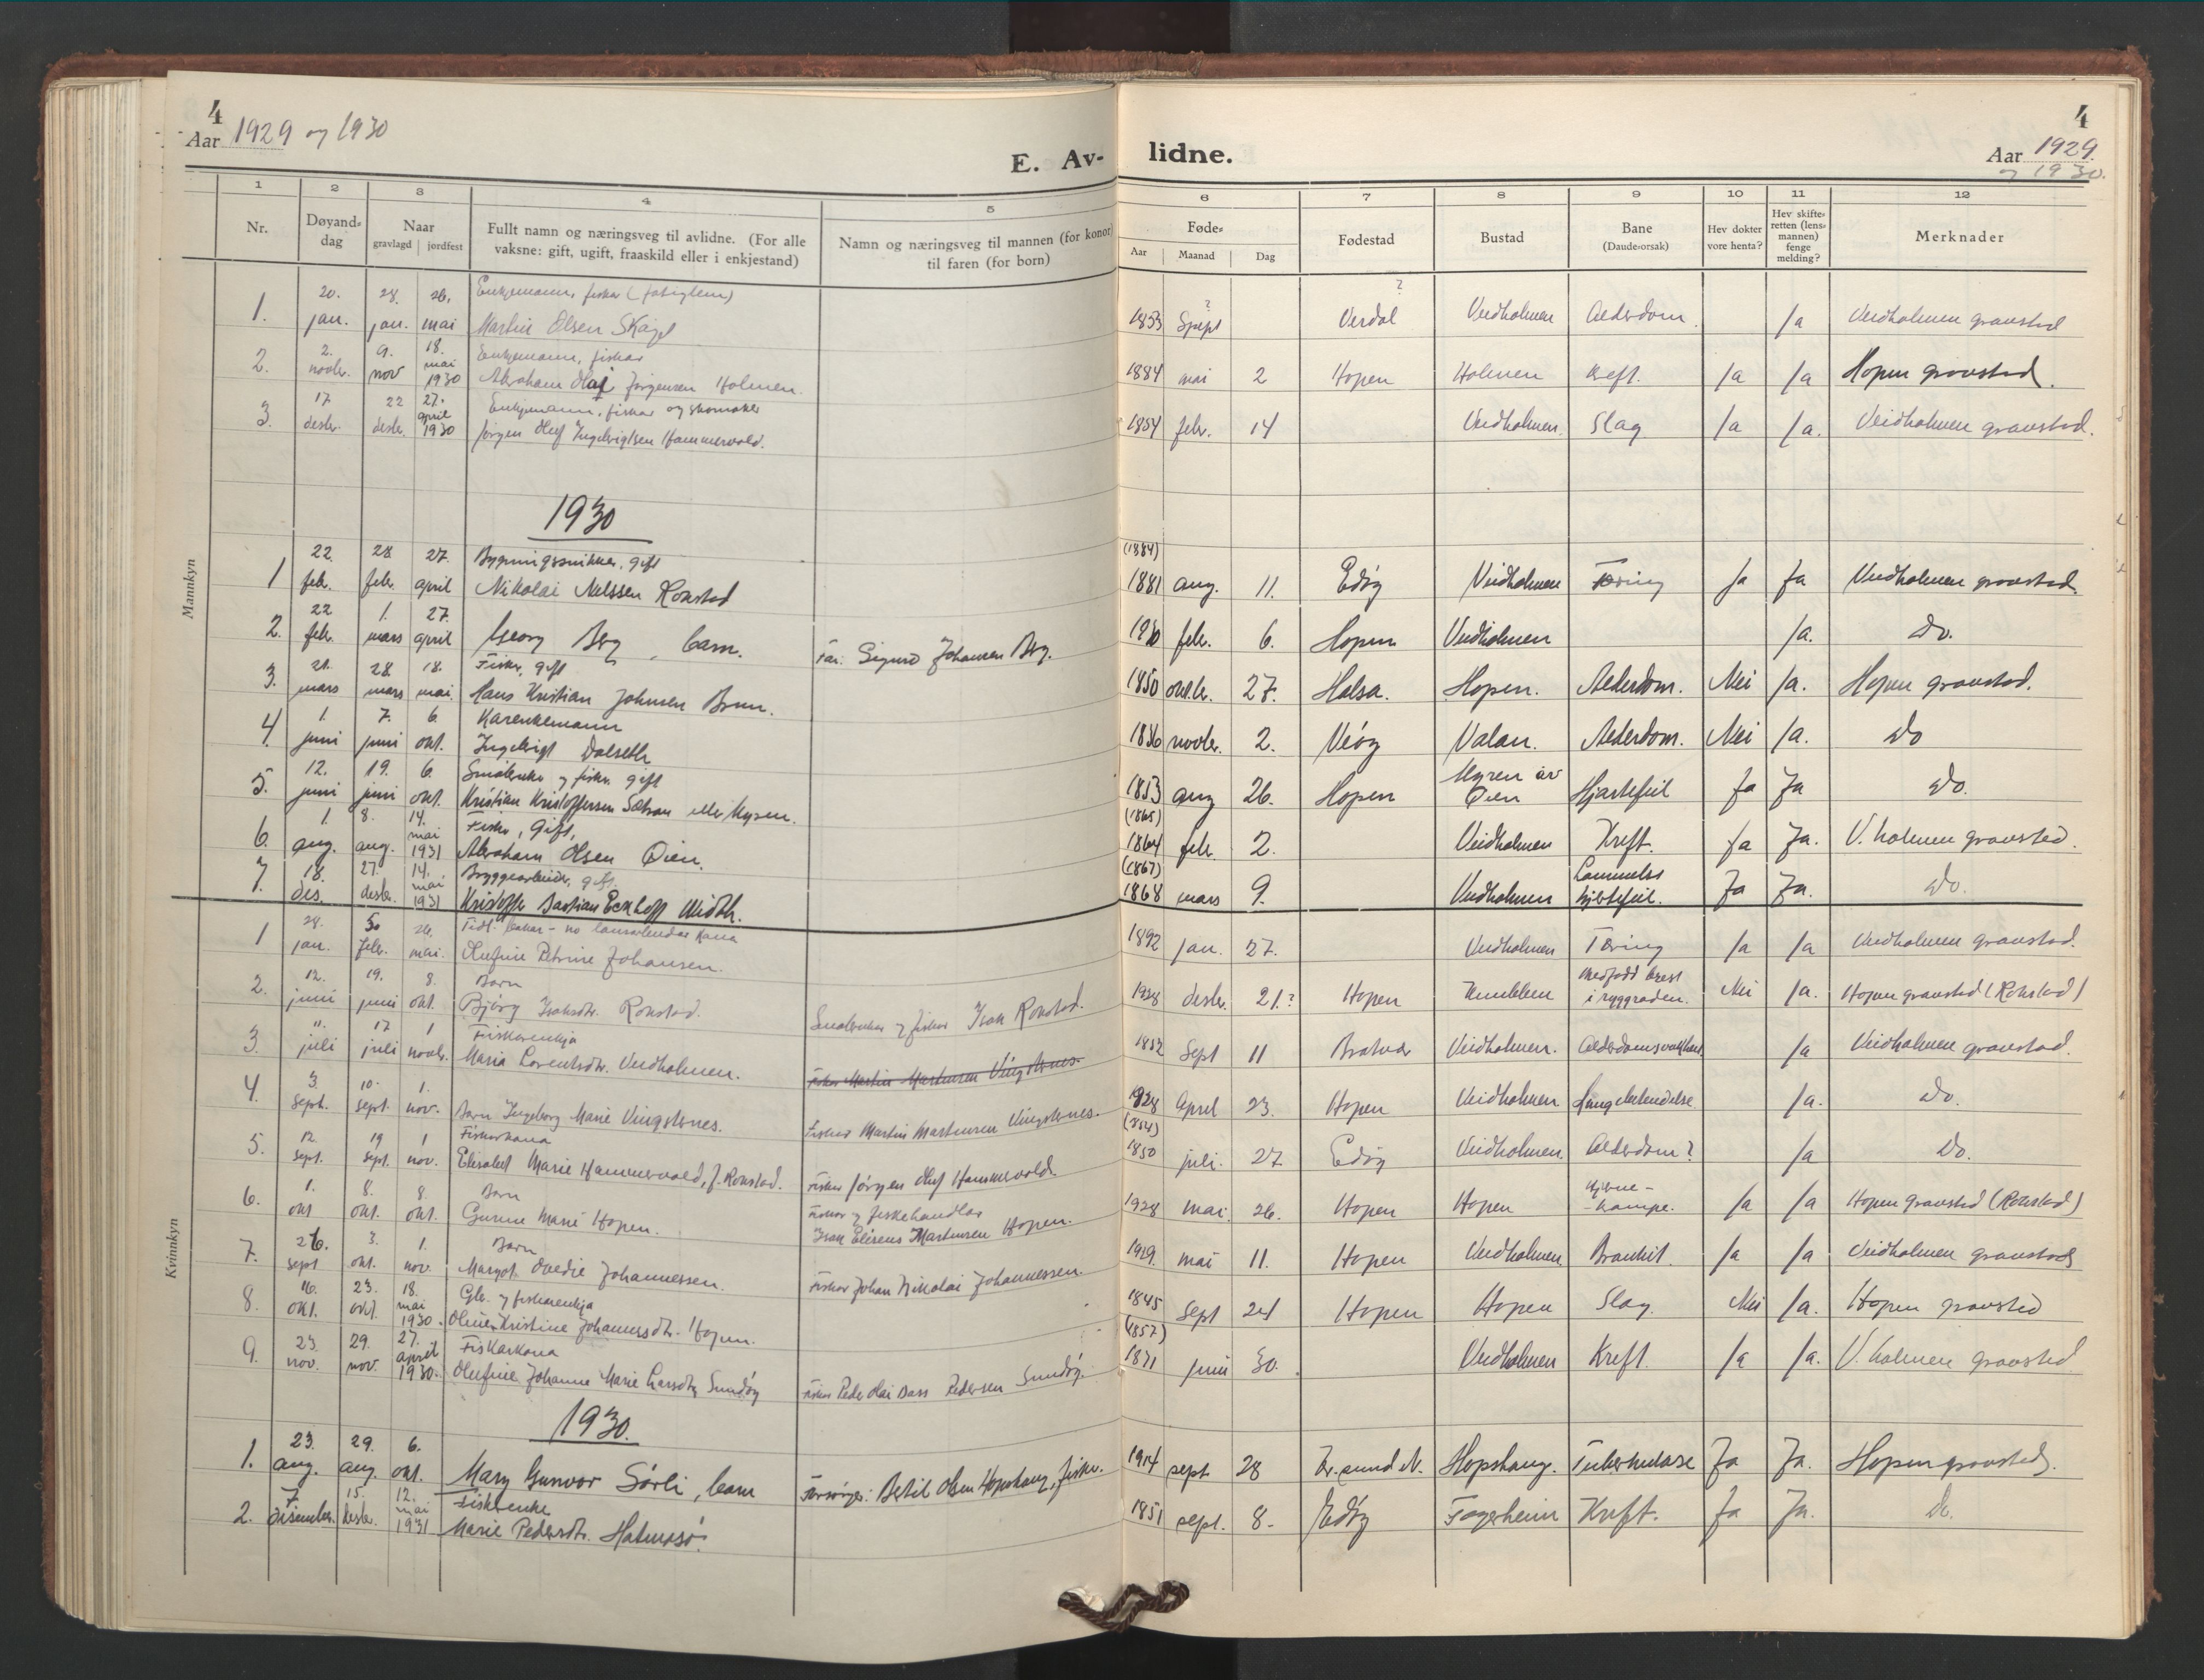 4
Aar 1929 og 1930
E. Av-
1 2 3 4 5
Nr. Døyand-dag Naar gravlagd jordfest
Fullt namn og næringsveg til avlidne. (For alle
vaksne: gift, ugift, fraaskild eller i enkjestand)
Namn og næringsveg til mannen (for konor)
til faren (for born)
Mannkyn
20. 28. 26. Enkjemann, fiskar
1. jan. jan. mai Martin Olsen
2. 9. 18. Enkjemann, fiskar
2. novbr. nov mai 1930 Abraham Olaf Jørgensen Holmen.
17 22 27. Enkjemann, fiskar og skomaker
3. desbr. desbr. april 1930 Jørgen Oluf Ingebrigtsen Hammervold.
1930
22. 28 27. Bygningssnikker, gift
1 febr. febr. april Nikolai Nilssen Rokstad
22 1. 27.
2. febr. mars april Georg Berg, barn. Far: Sigurd Johansen Berg.
21. 28. 18. Fisker, gift
3. mars mars mai. Hans Kristian Johnsen Brun.
1. 7. 6. Kårenkemann
4. juni juni okt. Ingebrigt Dalseth
12. 19. 6. Småbruker og fisker gift
5. juni juni okt. Kristian Kristoffersen Sætran eller Myren.
1. 8. 14. Fisker, Gift,
6. aug. aug. mai 1931 Abraham Olsen Øien.
18. 27. 14. Bryggearbeider, gift.
7. des. desbr. mai 1931 Kristoffer Bastian Eckhoff Width.
Kvinnkyn
28. 5. 26.
1 jan. febr. mai. Olufine Petrine Johansen.
12. 19. 8. Barn
2. juni juni okt. Bjørg Isaksdtr. Rokstad. Småbrukar og fiskar Isak Rokstad.
11. 17 1 Fiskarenkja
3. juli juli novbr. Maria Lorentsdtr. Veidholmen.
Fiskar Martin Martinsen Vingsternes.
3. 10. 1.
4. sept. sept. nov. Barn Ingeborg Marie Vingsternes. Fiskar Martin Martinsen Vingsternes.
12. 19 1 Fiskarkona
5. sept. sept. nov. Elisabet Marie Hammervold, f. Rokstad. Fiskar Jørgen Oluf Hammervold.
1. 8. 8. Barn Fiskar og fiskehandlar
6. okt okt. okt. Gunne Marie Hopen. Isak Elisæus Martinsen Hopen.
26. 3. 1. Barn
7. sept okt. nov. Margot Ovedie Johannessen. Fiskar Johan Nikolai Johannessen.
16. 23. 18. Gbr. og fiskarenkja
8. okt. okt mai 1930. Oline Kristine Johannesdtr. Hopen.
23. 29. 27. Fiskarkona
9. nov. nov. april 1930. Olufine Johanna Marie Larsdtr Sundøy Fiskar Peder Olai Bass Pedersen Sundøy.
1930.
23. 29. 6.
1. aug. aug. okt. Mary Gunvor Sørli, barn Forsørger: Bertil Olsen Hopshaug, fisker.
7. 15. 12. Fiskerenke
2. desember. desbr. mai 1931 Marie Pedersdtr. Halmøsø.
4
lidne.
Aar 1929.
og 1930.
6 7 8 9 10 11 12
Føde- Aar Maanad Dag
Fødestad Bustad Bane (Daude-orsak) Hev dokter vore henta? Hev skifte-retten (lens-mannen) fenge melding? Merknader
1853 ? Sept ? Verdal Veidholmen Alderdom. Ja Veidholmen gravstad
1884 mai 2 Hopen Holmen Kreft. Ja Ja Hopen gravstad.
1854 febr. 14 Veidholmen. Slag Ja Ja. Veidholmen gravstad.
(1884)
1881 aug. 11. Edøy Veidholmen Tæring Ja Ja Veidholmen gravstad.
1930 febr. 6. Hopen Veidholmen Ja. Do.
1850 oktbr. 27. Halsa. Hopen. Alderdom. Nei Ja. Hopen gravstad.
1836 novbr. 2. Veøy Valan. Alderdom. Nei Ja. Do
1853 aug 26. Hopen Myren av Øien Hjartefeil Ja Ja Do.
(1865)
1864 febr. 2. Veidholmen Kreft. Ja Ja. V.holmen gravsted.
(1867)
1868 mars 9. Veidholmen Lammelse hjertefeil. Ja Ja. Do.
1892 jan. 27. Veidholmen Tæring Ja Ja Veidholmen gravstad.
1928 desbr. 21.? Hopen Medfødd brest i ryggraden. Nei Ja. Hopen gravstad (Rokstad)
1852 Sept 11 Bratvær Veidholmen. Ja Veidholmen gravstad.
1928 April 23. Hopen Veidholmen Lungebetendelse. Ja. Do.
(1854)
1850 juli. 27 Edøy Veidholmen. Alderdom? Ja Do.
1928 mai. 26. Hopen Hopen Hjerne-krampe. Ja Ja Hopen gravstad (Rokstad)
1929. mai 11. Hopen Veidholmen Bronkit. Ja Ja Veidholmen gravstad
1845 Sept 24 Hopen Hopen Slag. Nei Ja. Hopen gravstad
(1857)
1871 juni 30. Veidholmen Kreft. Ja Ja. V.holmen gravsted
1914 sept. 28 Kr.sund N. Hopshaug. Tuberkulose Ja Ja. Hopen gravsted.
1851 sept. 8. Edøy Fagerheim Kreft. Ja Ja. Do.